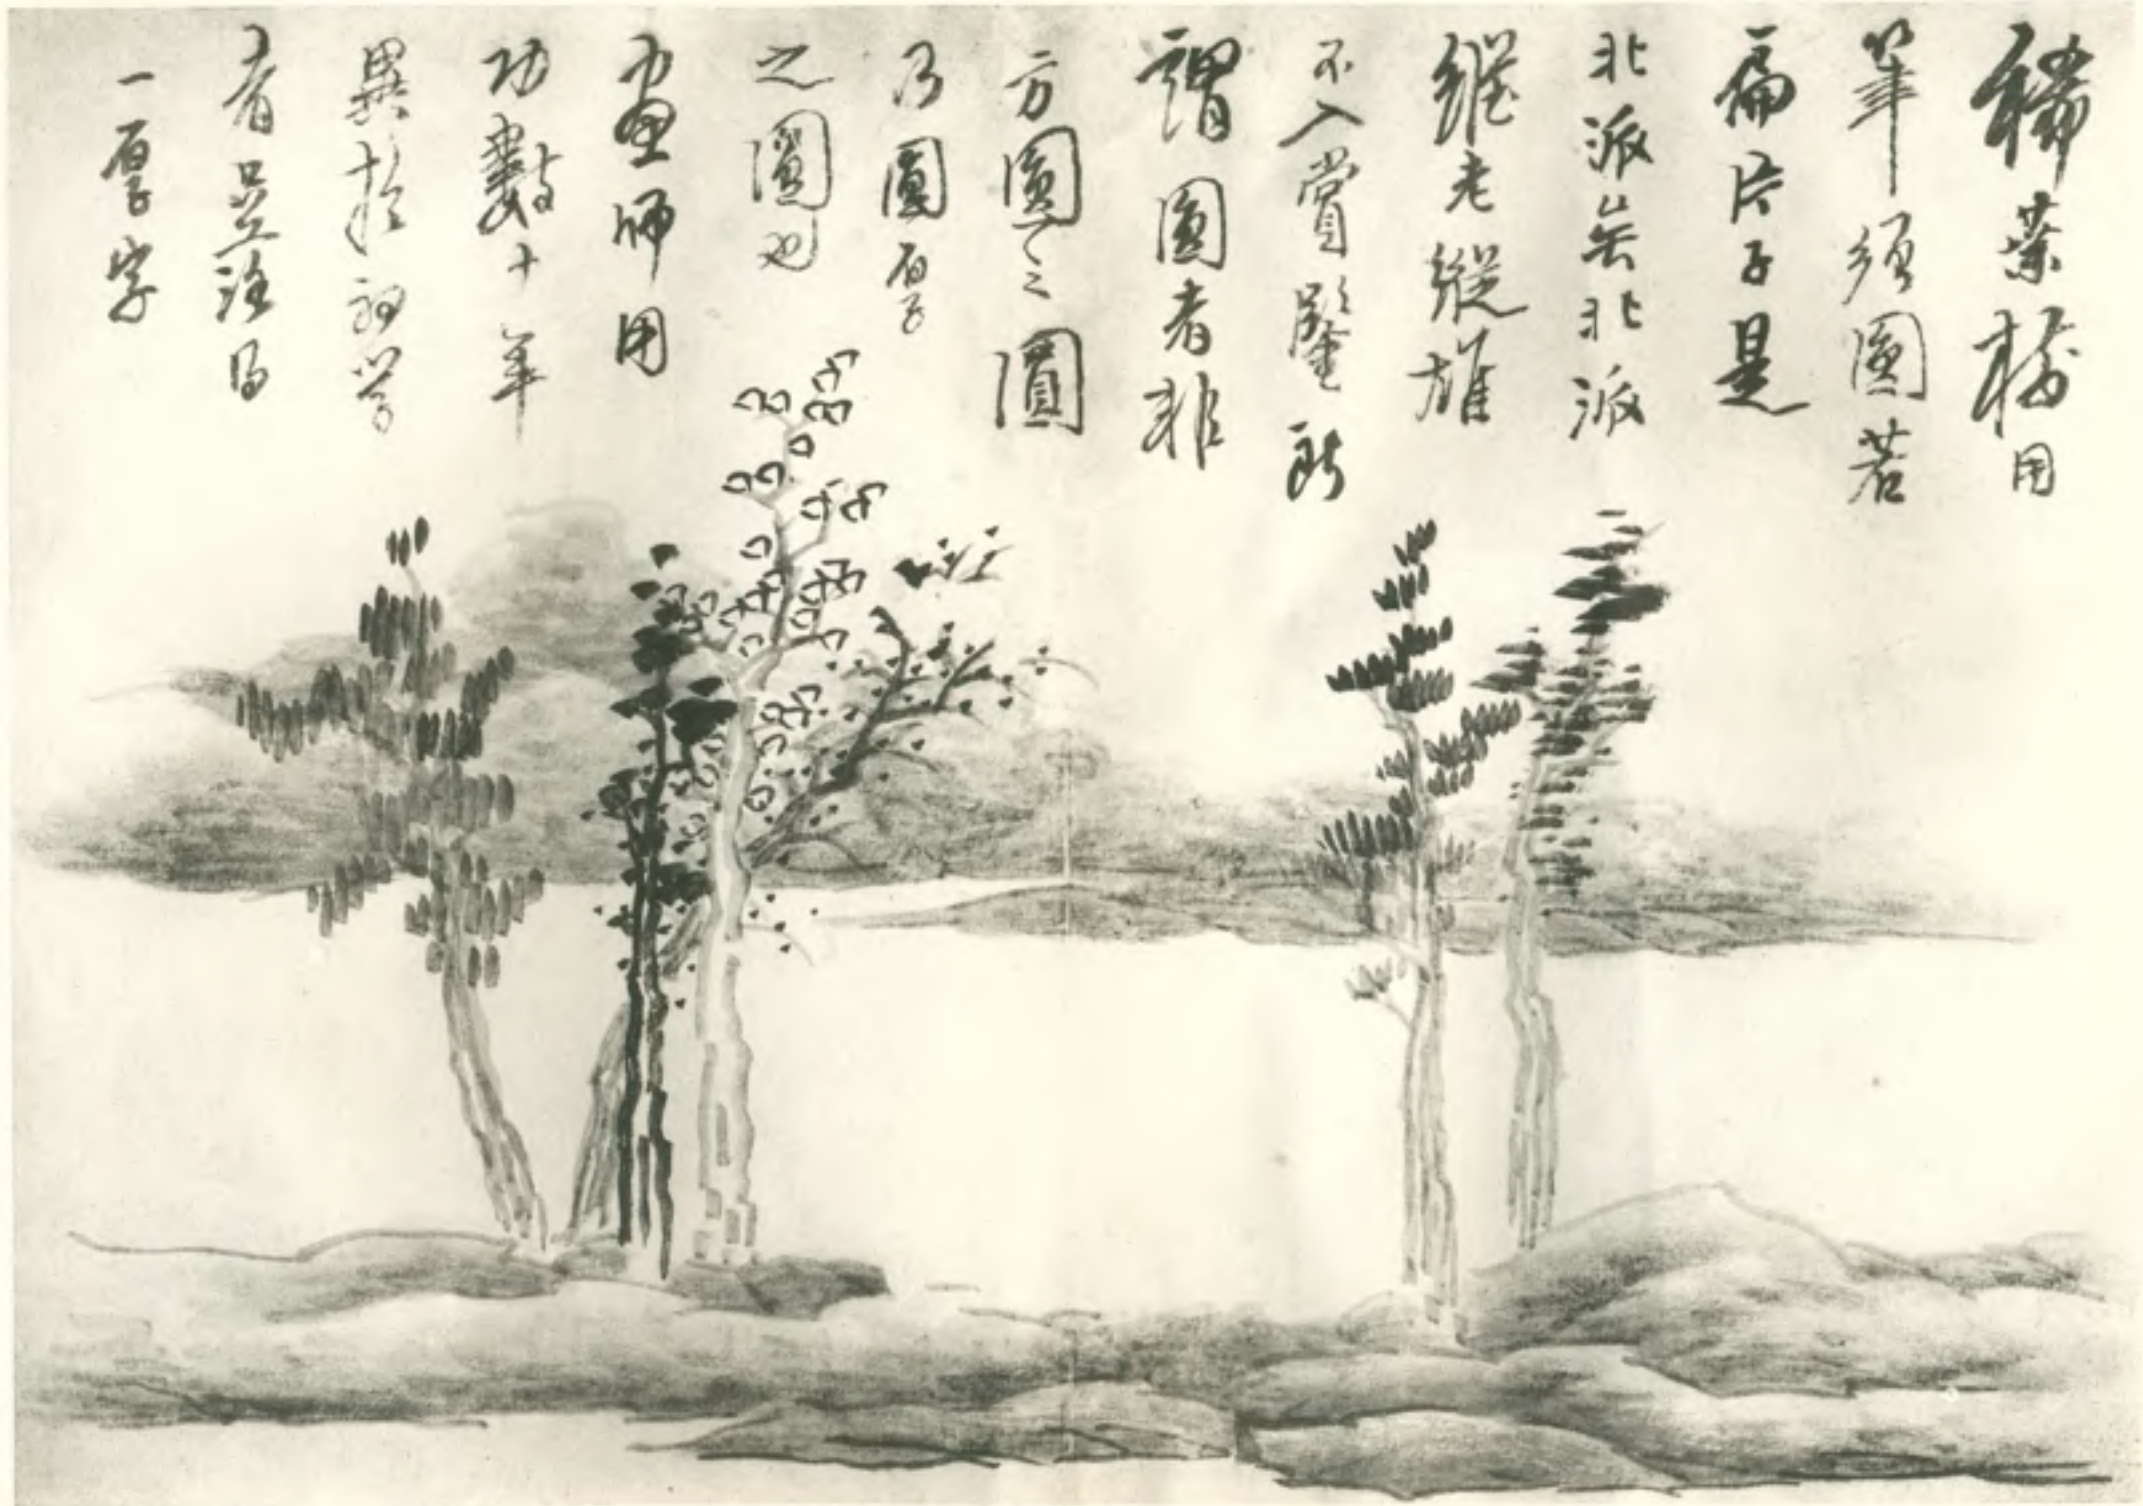 稀葉樹用
筆須圓若
扁片子是
北派矣北派
縱老縱雄
不入賞鑒所
謂圓者非
方圓之圓
乃圓厚
之圓也
画師用
功數十年
異於初學
者並落得
一厚字